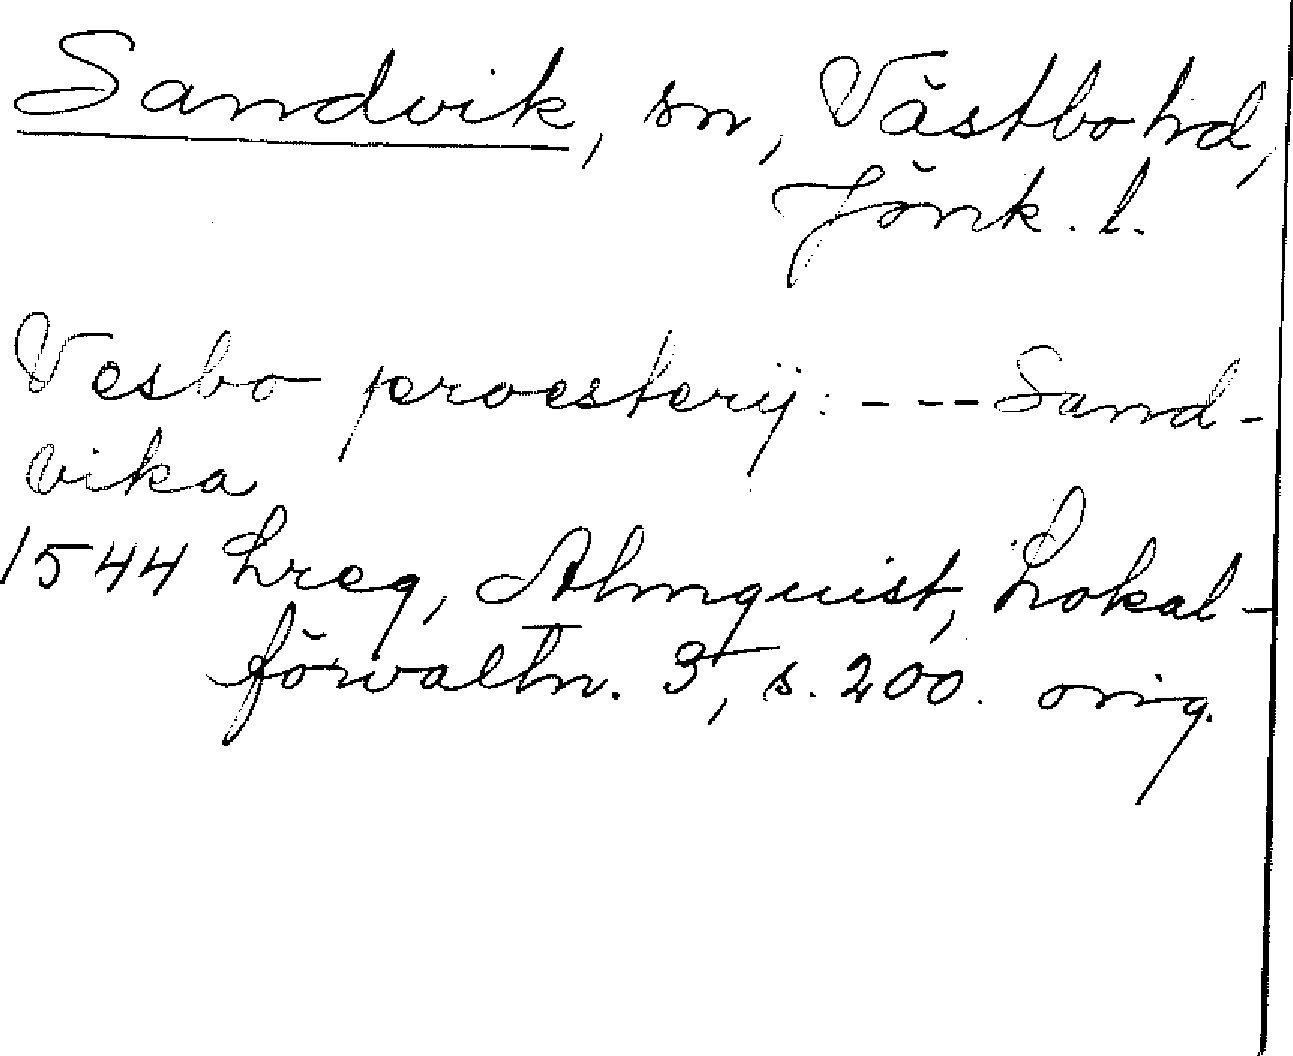 Sandvik, sn, Västbo hd,
Jönk. l.
Vesbo proesterij: --- Sand-
vika
1544 Lreg, Almquist, Lokal-
förvaltn. 3, s. 200. orig.